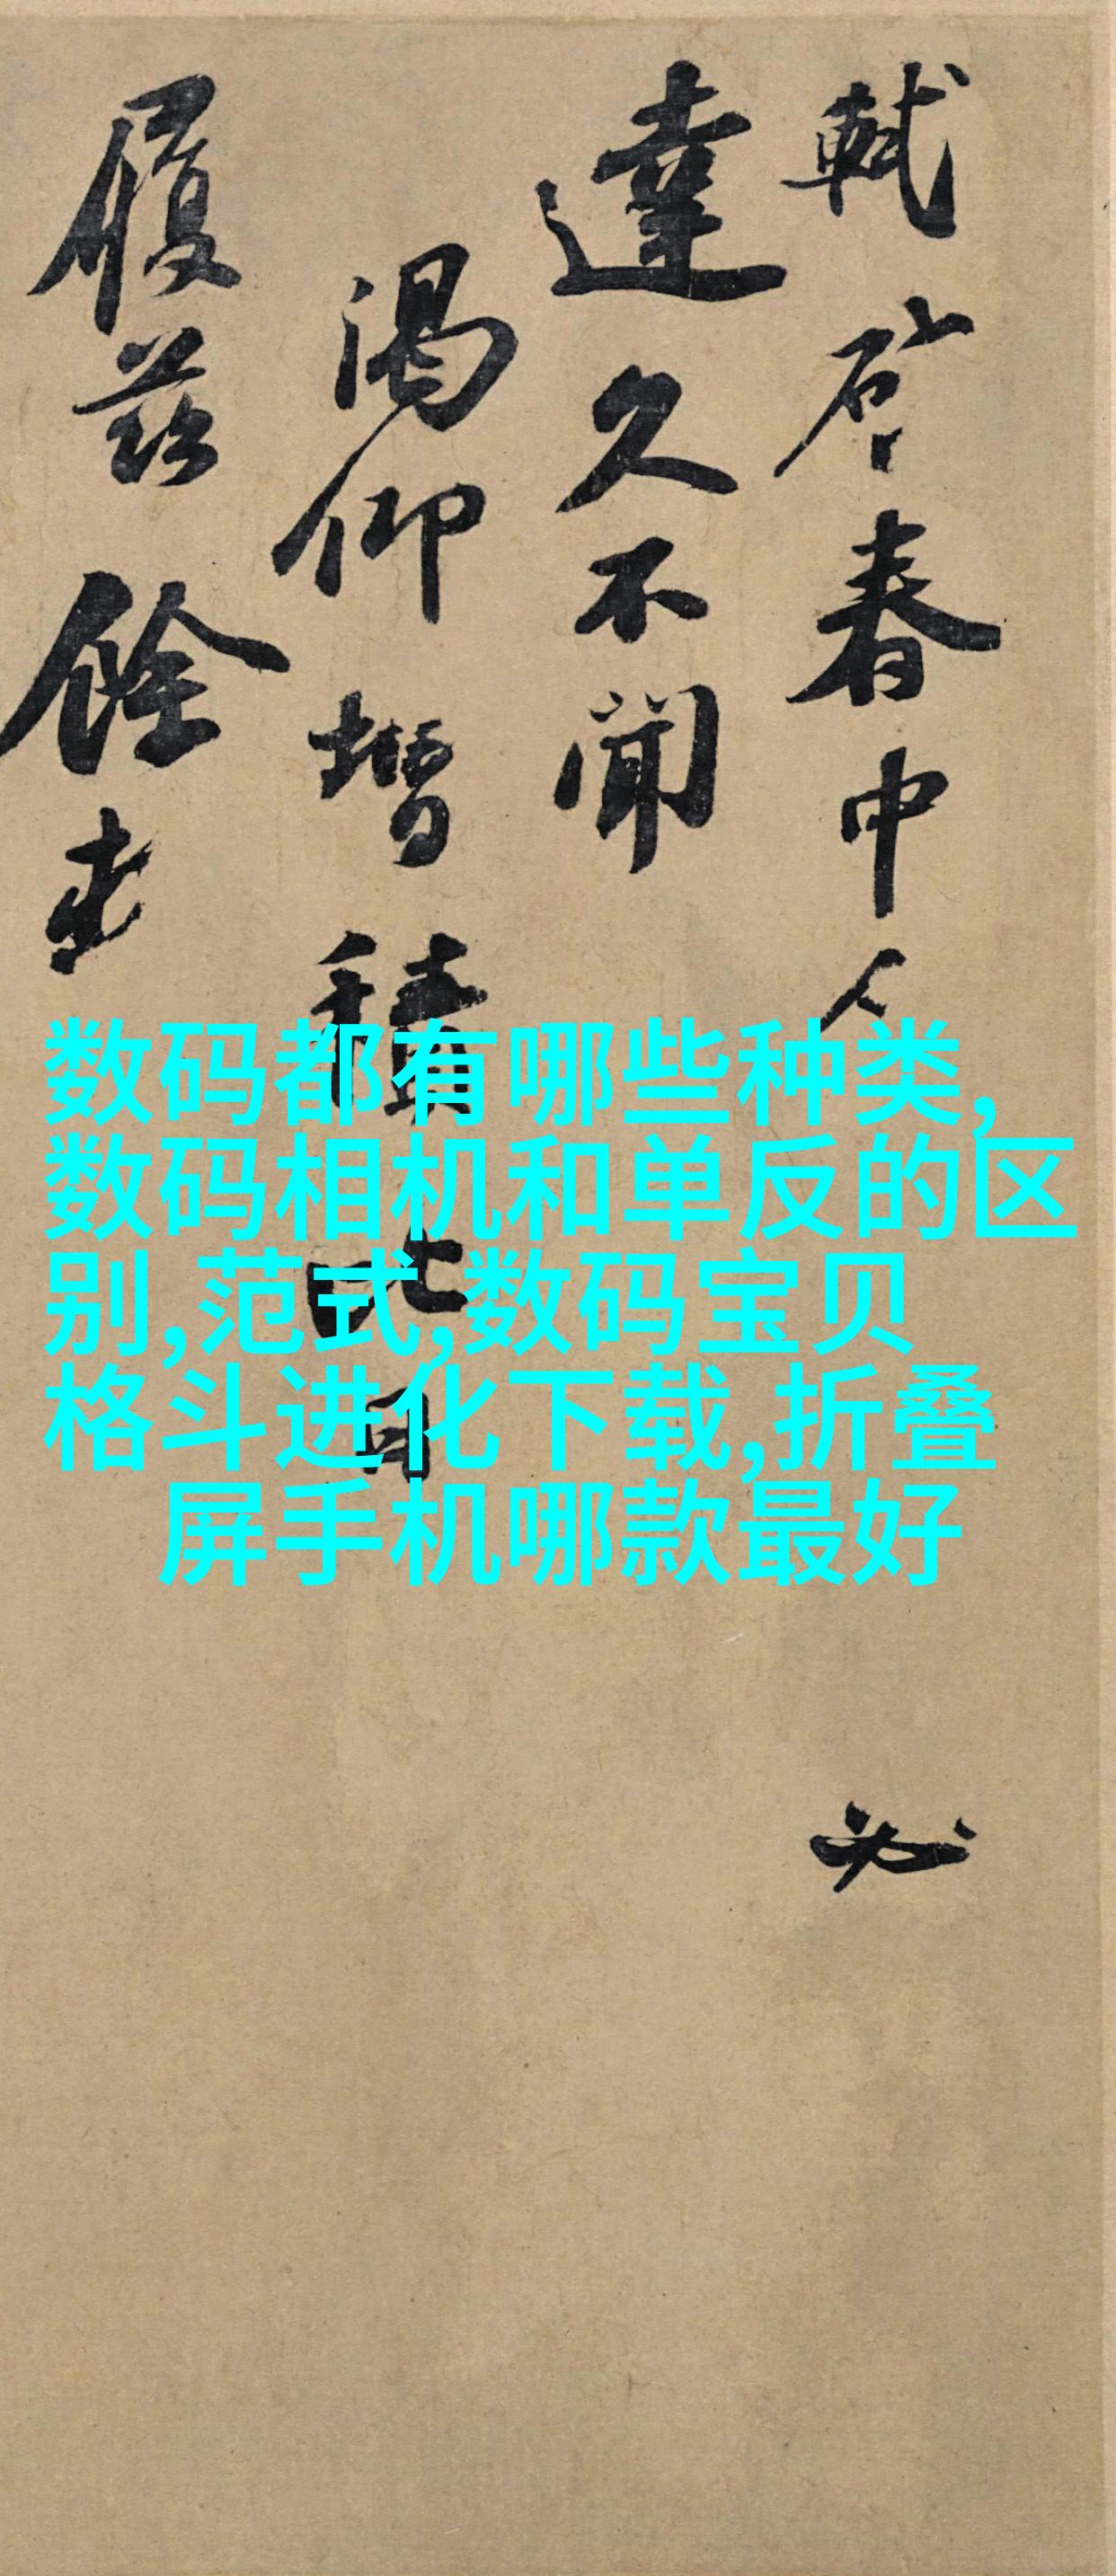 軾啓春中人
必
達久不聞
渴仰增積比日
履茲餘
数码都有哪些种类,
数码相机和单反的区
别,范式,数码宝贝
格斗进化下载,折叠
屏手机哪款最好